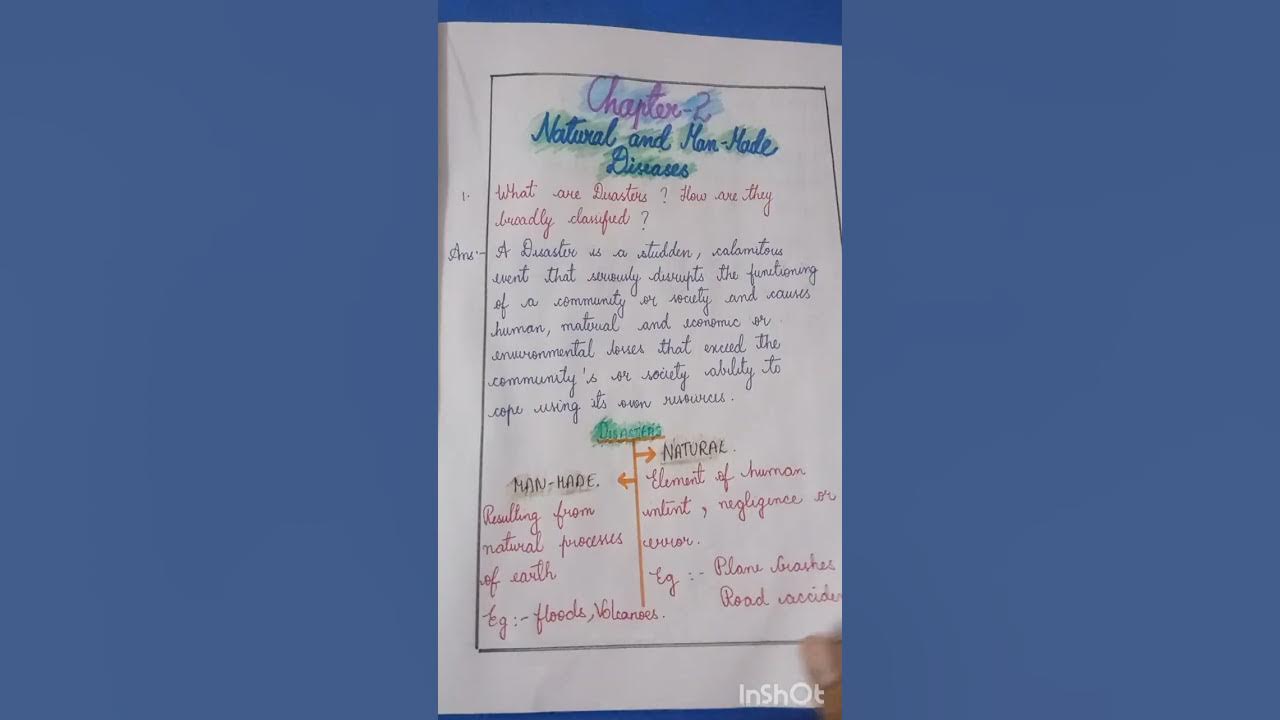 Chapter-2
Natural and Man-Made
Diseases
1. What are Disasters ? How are they
broadly classified ?
Ans:- A Disaster is a studden, calamitous
event that seriously disrupts the functioning
of a community or society and causes
human, material and economic or
environmental losses that exceed the
community's or society ability to
cope using its own resources.
DISASTERS
NATURAL.
MAN-MADE.
Element of human
intent, negligence or
error.
Eg :- Plane Crashes
Road acciden
Resulting from
natural processes
of earth
Eg :- floods, Volcanoes.
InShOt